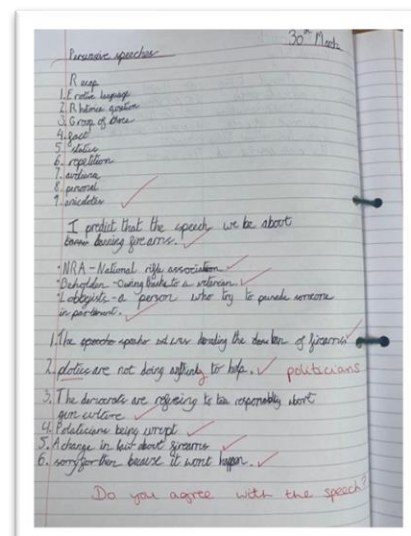 30th March
Persuasive speeches
Recap
1. Emotive language
2. Rhetorical question
3. Group of three
4. fact
5. statics
6. repetition
7. audience
8. personal
9. anecdotes
I predict that the speech we be about
banning firearms.
• NRA - National rifle association
• Beholden - Owing thanks to a veteran.
• Lobbyists - a person who try to
in parliment.
1. The speaker was the of firearms
2. plotics are not doing anything to help. politicians
3. The democrats are refusing to take about
gun culture
4. Polaticians being
5. A change in law about firearms
6. sorry for then because it wont happen.
Do you agree with the speech?